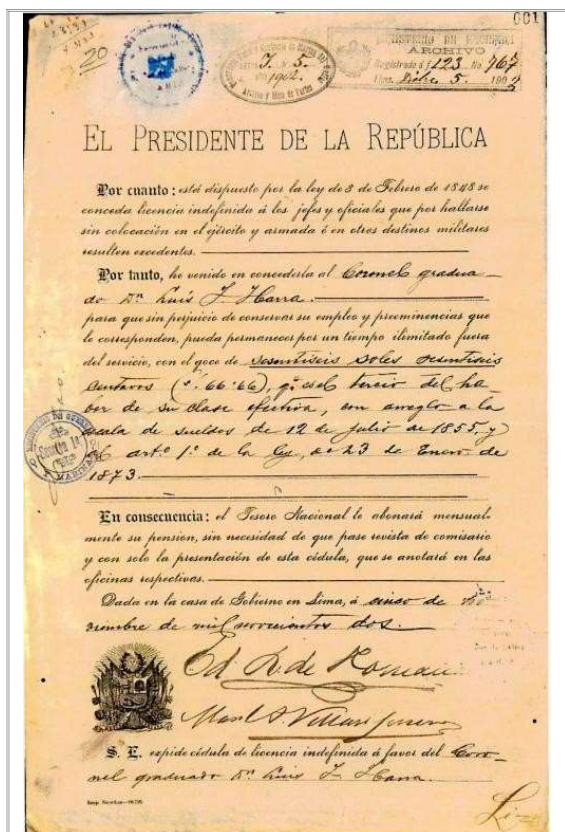 001
20
MINISTERIO DE HACIENDA
ARCHIVO
Registrado á f. 123 No. 767
5. 190
J. x 5.
1902.
Archivo y Mesa de Partes
EL PRESIDENTE DE LA REPÚBLICA
Por cuanto: está dispuesto por la ley de 3 de Febrero de 1848 se
conceda licencia indefinida á los jefes y oficiales que por hallarse
sin colocación en el ejército y armada ó en otros destinos militares
resulten excedentes.
Por tanto, he venido en concederla al Coronel gradua
do Dn Luis J. Ibarra.
para que sin perjuicio de conservar su empleo y preeminencias que
le corresponden, pueda permanecer por un tiempo ilimitado fuera
del servicio, con el goce de sesentiseis soles sesentiseis
centavos (s. 66.66), q. es el tercio del ha-
ber de su clase efectiva, con arreglo a la
escala de sueldos de 12 de Julio de 1855, y
al artº 1º de la ley, de 23 de Enero de
1873.
En consecuencia: el Tesoro Nacional le abonará mensual-
mente su pensión, sin necesidad de que pase revista de comisario
y con solo la presentación de esta cédula, que se anotará en las
oficinas respectivas.
Dada en la casa de Gobierno en Lima, á cinco de No
viembre de mil novecientos dos.
Ed. L. de Romaña
S. E. expide cédula de licencia indefinida á favor del Coro-
nel graduado Dn Luis J. Ibarra.